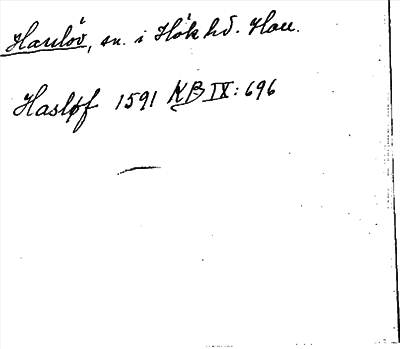 Hasslöv, sn. i Hök hd. Hall.
Hasløf 1591 KB IX: 696